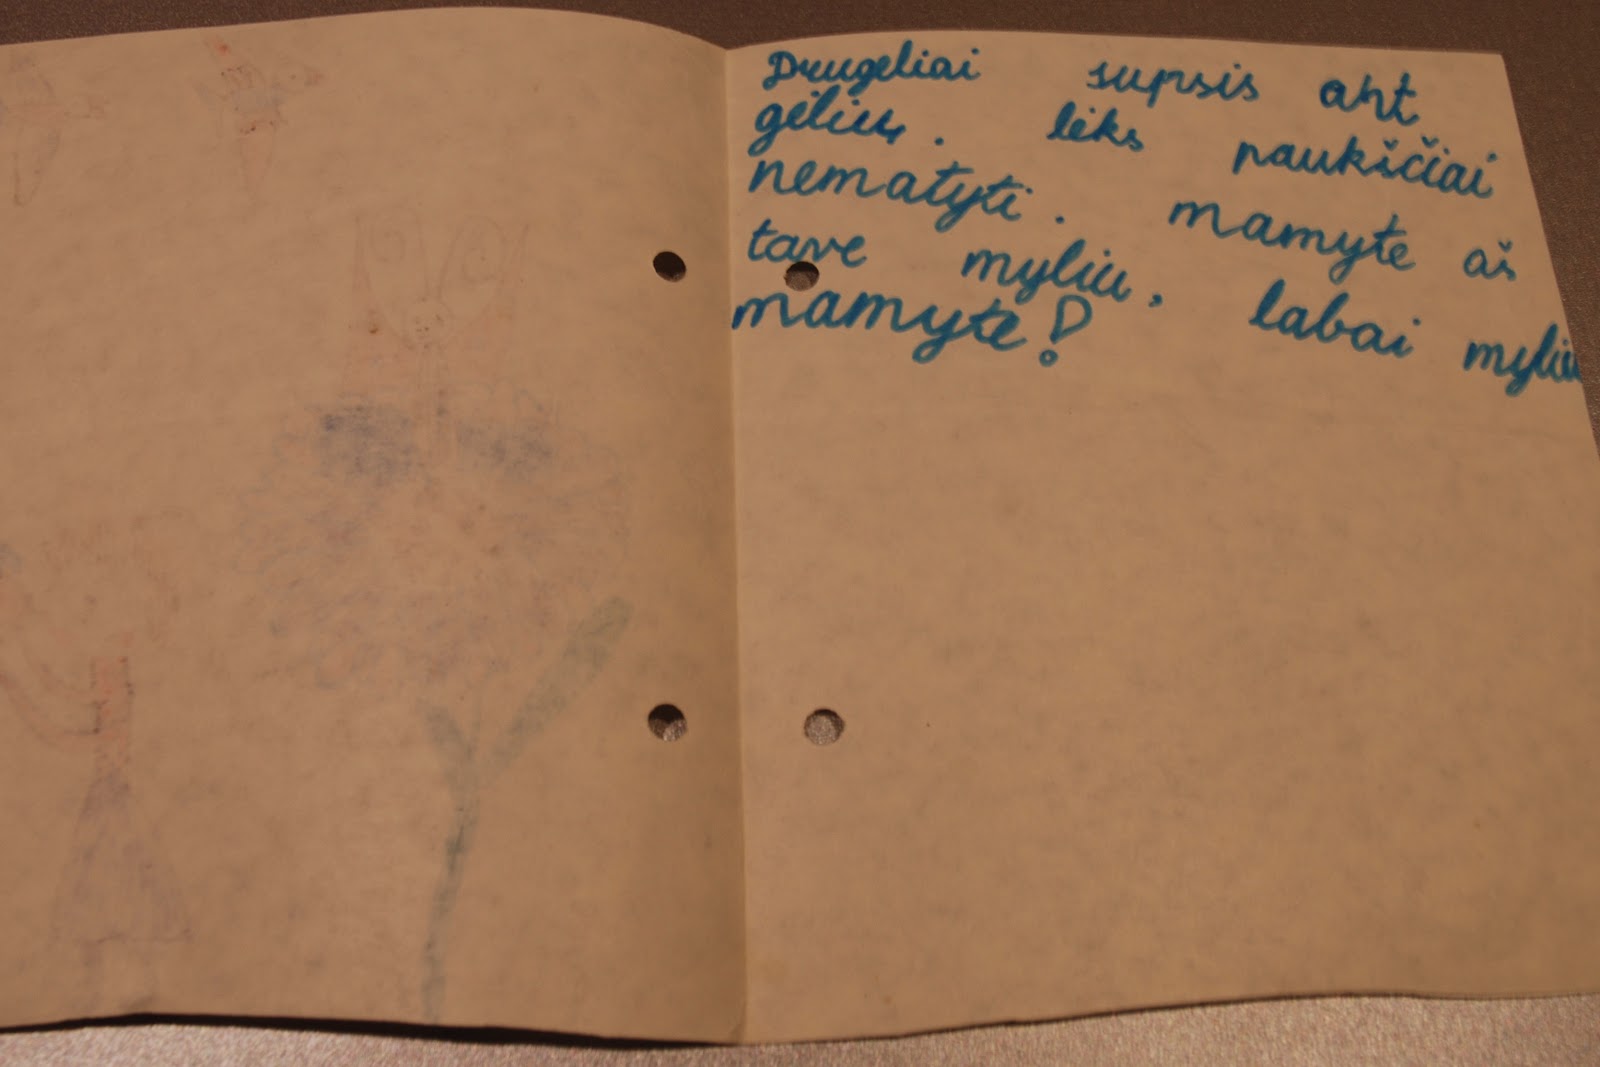 Drugeliai supsis ant
gėlių. lėks paukščiai
nematyti. mamyte aš
tave myliu, labai myliu
mamyte!